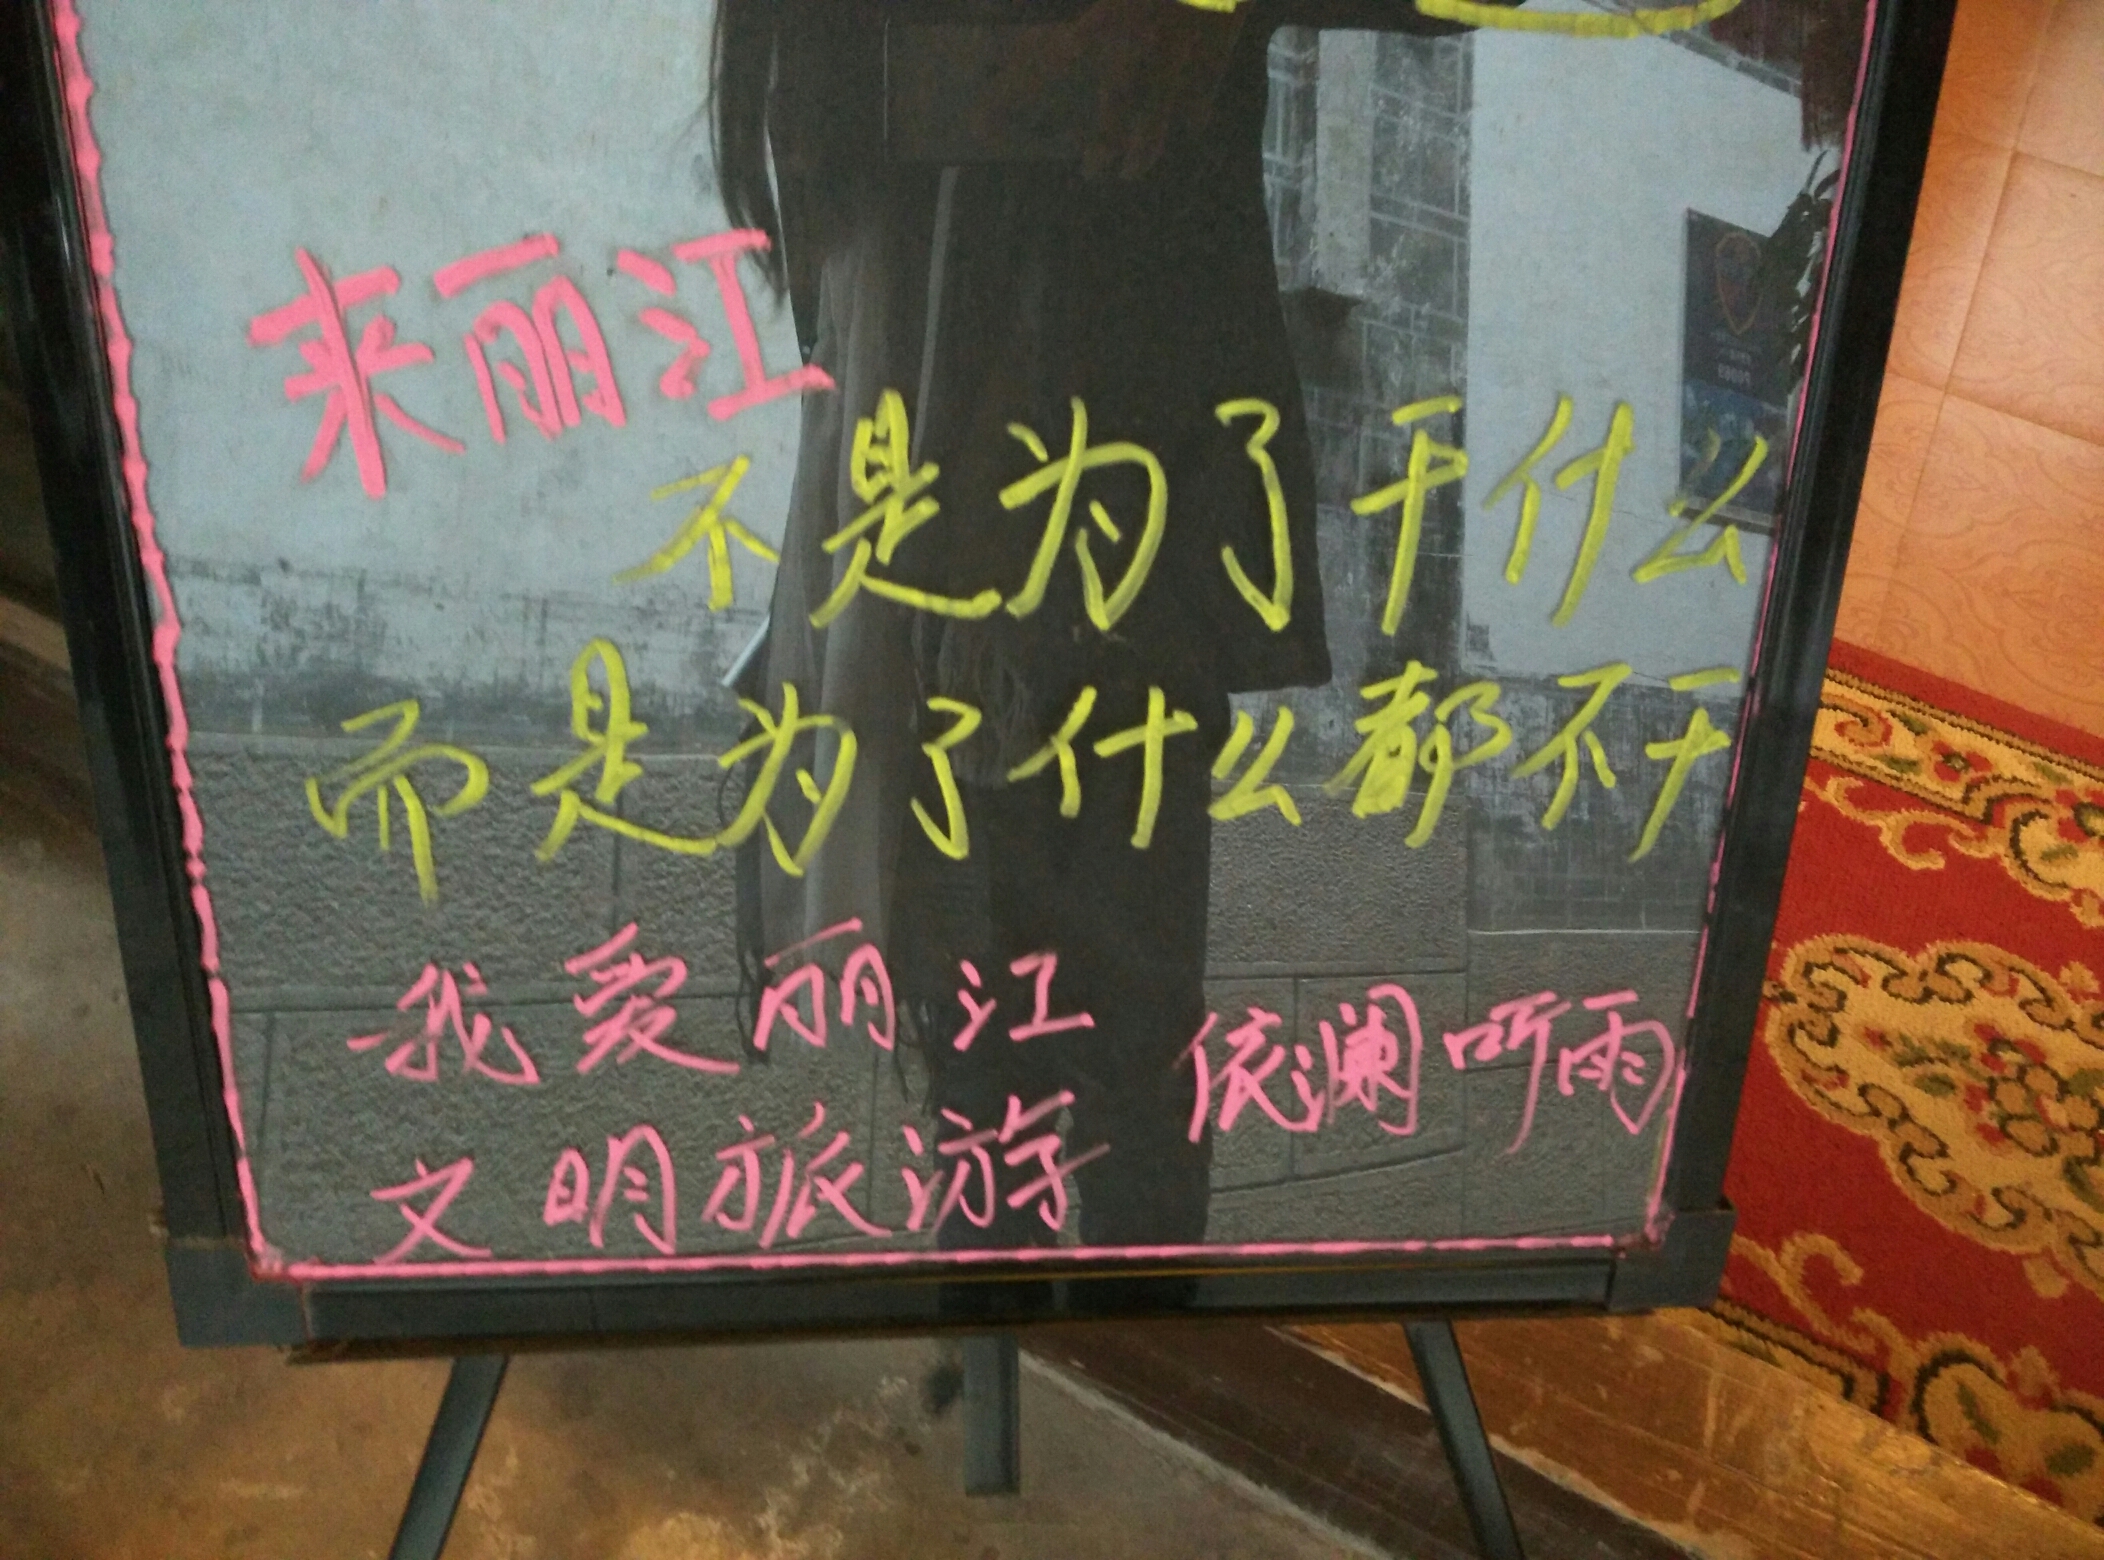 来丽江
不是为了干什么
而是为了什么都不干
我爱丽江
依澜听雨
文明旅游